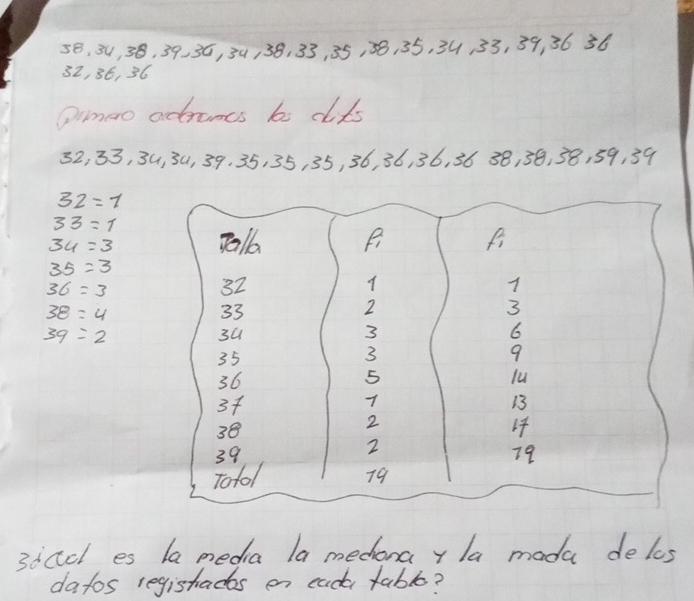 38, 34, 38, 39, 36, 34, 38, 33, 35, 38, 35, 34, 33, 39, 36 36
32, 36, 36
los
32, 33, 34, 34, 39. 35, 35, 35, 36, 36, 36, 36 38, 38, 38, 39, 39
32 = 1
33 = 1
34 = 3
35 = 3
36 = 3
38 = 4
39 = 2
Talla fi fi
32 1 1
33 2 3
34 3 6
35 3 9
36 5 14
37 1 13
38 2 17
39 2 19
Total 19
es la media la mediana y la moda de los
datos registrados en cada tabla?